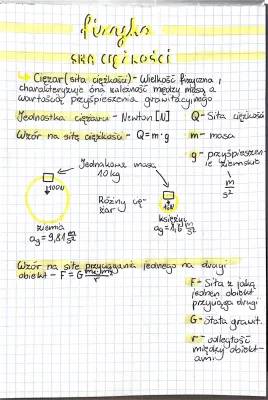 fizyka
SIŁA CIĘŻKOŚCI
↳ Ciężar (siła ciężkości) - Wielkość fizyczna i
charakteryzuje ona zależność między masą a
wartością przyśpieszenia grawitacyjnego
Jednostka ciężaru - Newton [N]
Wzór na siłę ciężkości - Q = m · g
Q - Siła ciężkości
m - masa
g - przyśpieszenie
ziemskie
m
s²
Jednakowe masy
10 kg
100N
Różny cię-
żar
ziemia
ag = 9,81 m/s²
księżyc
Wzór na siłę przyciągania jednego na drugi
obiekt - F = G
F - Siła z jaką
jeden obiekt
przyciąga drugi
G - Stała grawit.
r - odległość
między obiekt-
ami